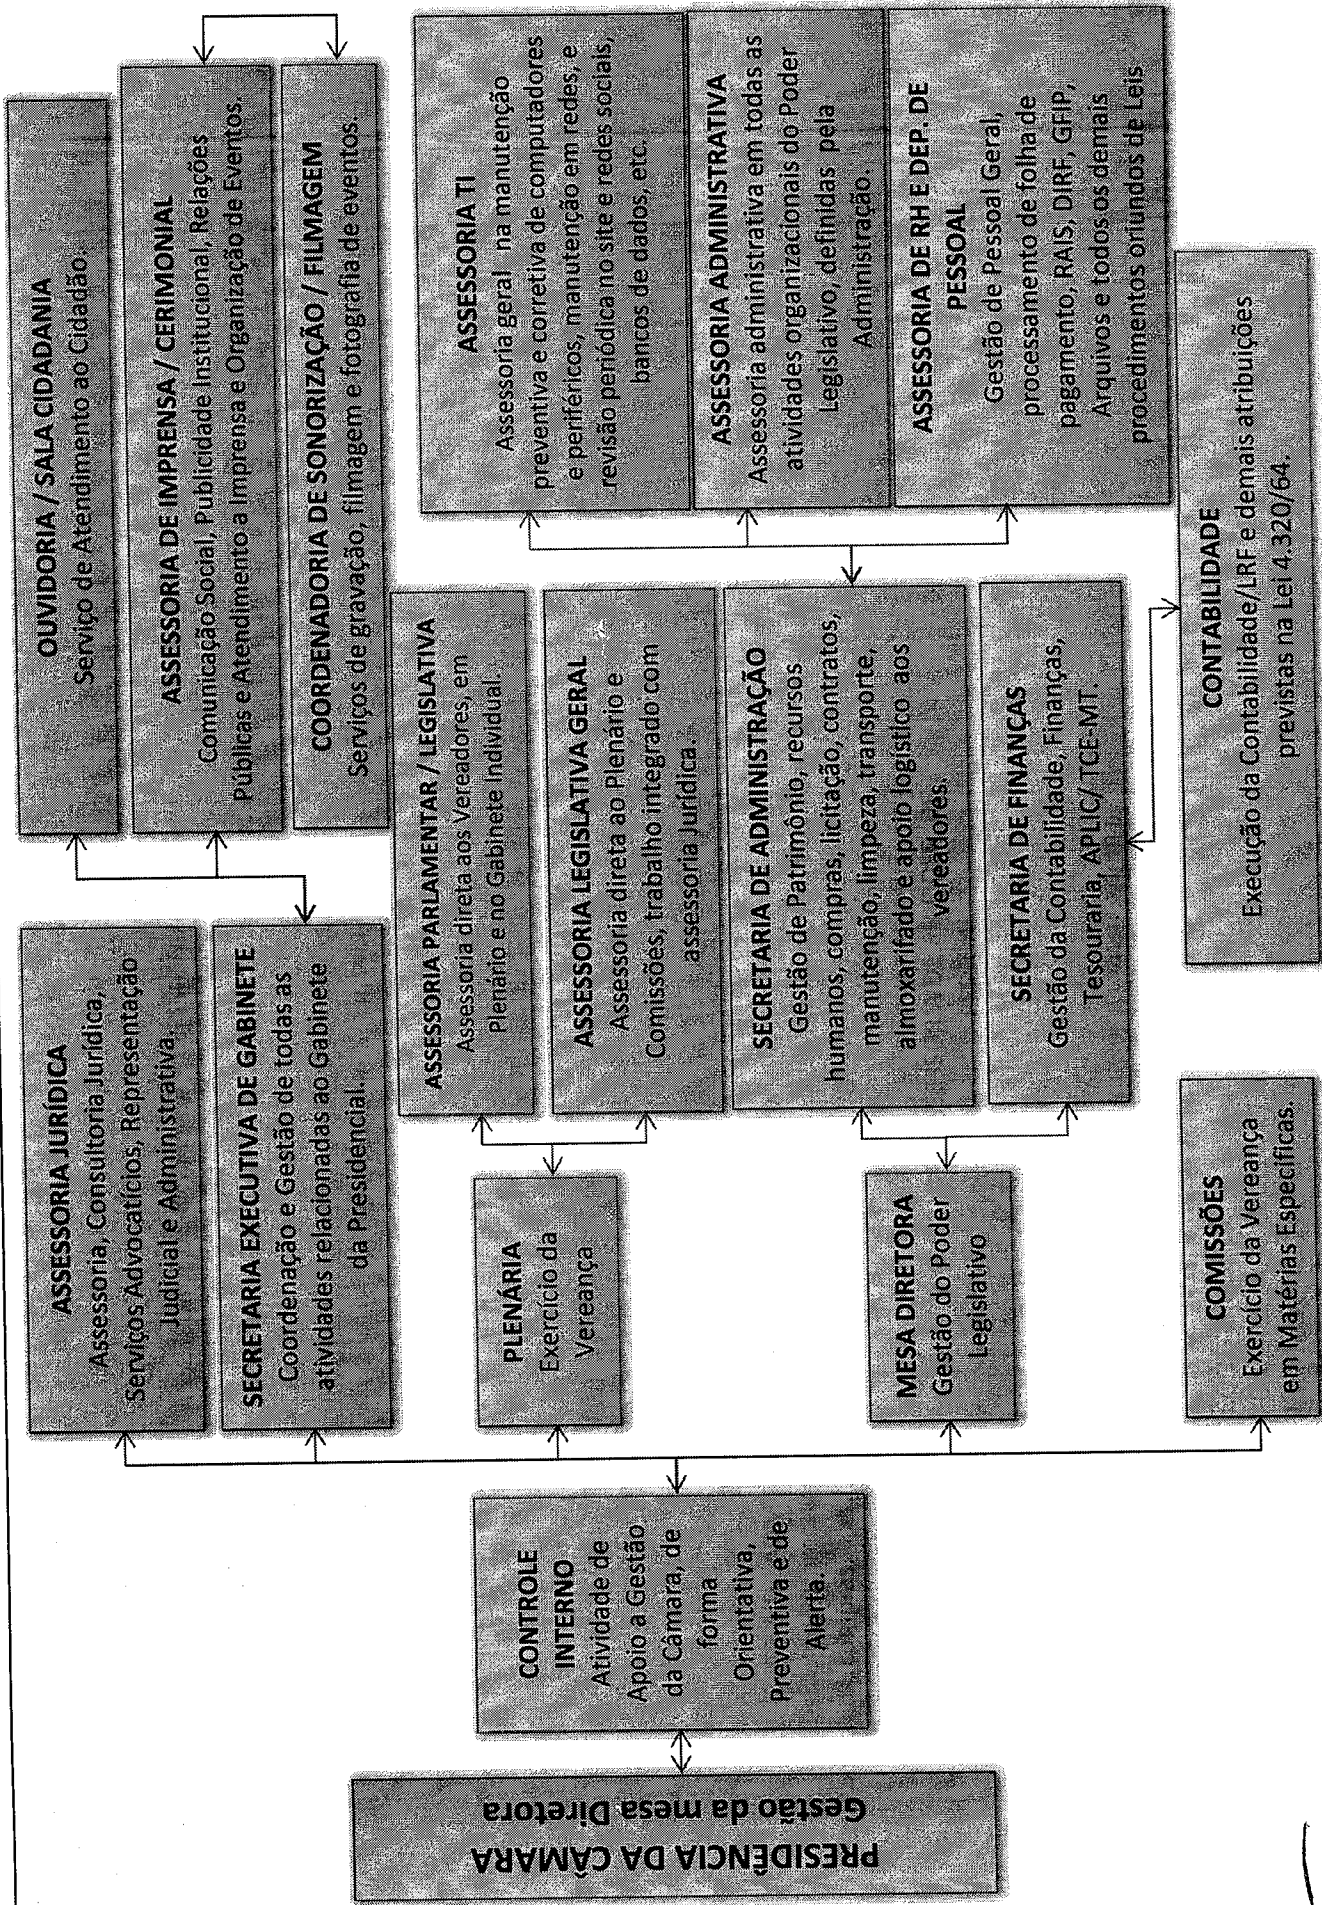 PRESIDÊNCIA DA CÂMARA
Gestão da mesa Diretora
CONTROLE
INTERNO
Atividade de
Apoio a Gestão
da Câmara, de
forma
Orientativa,
Preventiva e de
Alerta.
ASSESSORIA JURÍDICA
Assessoria, Consultoria Jurídica,
Serviços Advocatícios, Representação
Judicial e Administrativa.
SECRETARIA EXECUTIVA DE GABINETE
Coordenação e Gestão de todas as
atividades relacionadas ao Gabinete
da Presidencial.
PLENÁRIA
Exercício da
Vereança.
MESA DIRETORA
Gestão do Poder
Legislativo
COMISSÕES
Exercício da Vereança
em Matérias Específicas.
OUVIDORIA / SALA CIDADANIA
Serviço de Atendimento ao Cidadão.
ASSESSORIA DE IMPRENSA / CERIMONIAL
Comunicação Social, Publicidade Institucional, Relações
Públicas e Atendimento a Imprensa e Organização de Eventos.
COORDENADORIA DE SONORIZAÇÃO / FILMAGEM
Serviços de gravação, filmagem e fotografia de eventos.
ASSESSORIA PARLAMENTAR / LEGISLATIVA
Assessoria direta aos Vereadores, em
Plenário e no Gabinete Individual.
ASSESSORIA LEGISLATIVA GERAL
Assessoria direta ao Plenário e
Comissões, trabalho integrado com
assessoria Jurídica.
SECRETARIA DE ADMINISTRAÇÃO
Gestão de Patrimônio, recursos
humanos, compras, licitação, contratos,
manutenção, limpeza, transporte,
almoxarifado e apoio logístico aos
vereadores.
SECRETARIA DE FINANÇAS
Gestão da Contabilidade, Finanças,
Tesouraria, APLIC/ TCE-MT.
ASSESSORIA TI
Assessoria geral na manutenção
preventiva e corretiva de computadores
e periféricos, manutenção em redes, e
revisão periódica no site e redes sociais,
bancos de dados, etc.
ASSESSORIA ADMINISTRATIVA
Assessoria administrativa em todas as
atividades organizacionais do Poder
Legislativo, definidas pela
Administração.
ASSESSORIA DE RH E DEP. DE
PESSOAL
Gestão de Pessoal Geral,
processamento de folha de
pagamento, RAIS, DIRF, GFIP,
Arquivos e todos os demais
procedimentos oriundos de Leis
CONTABILIDADE
Execução da Contabilidade/LRF e demais atribuições
previstas na Lei 4.320/64.